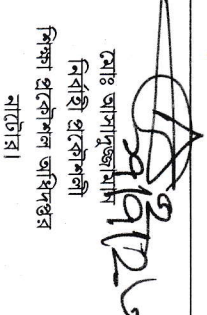 মোঃ আসাদুজ্জামান
নির্বাহী প্রকৌশলী
শিক্ষা প্রকৌশল অধিদপ্তর
নাটোর।